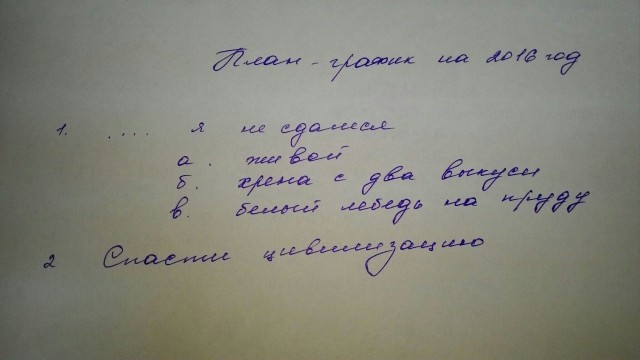 План-график на 2016 год
1. .... я не сдамся
а. живой
б. хрена с два выкуси
в. белый лебедь на пруду
2 Спасти цивилизацию